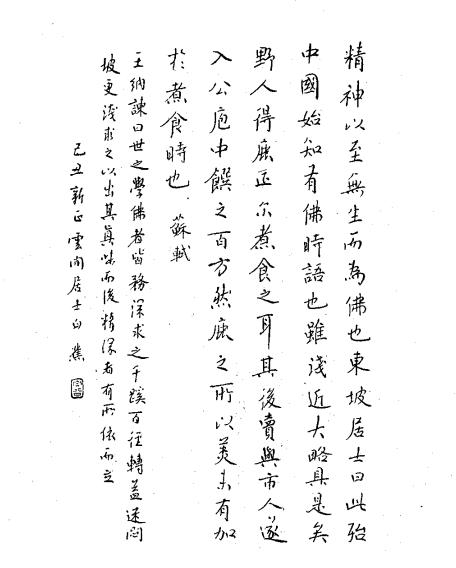 精神以至無生而為佛也東坡居士曰此殆
中國始知有佛時語也雖淺近大略具是矣
野人得鹿正尔煮食之耳其後賣與市人遂
入公庖中饌之百方然鹿之所以美未有加
於煮食時也 蘇軾
王納諫曰世之學佛者皆務深求之千蹊百徑轉益迷悶
坡更淺求之以出其真味而後精深者有所依而立
己丑新正雲間居士白蕉